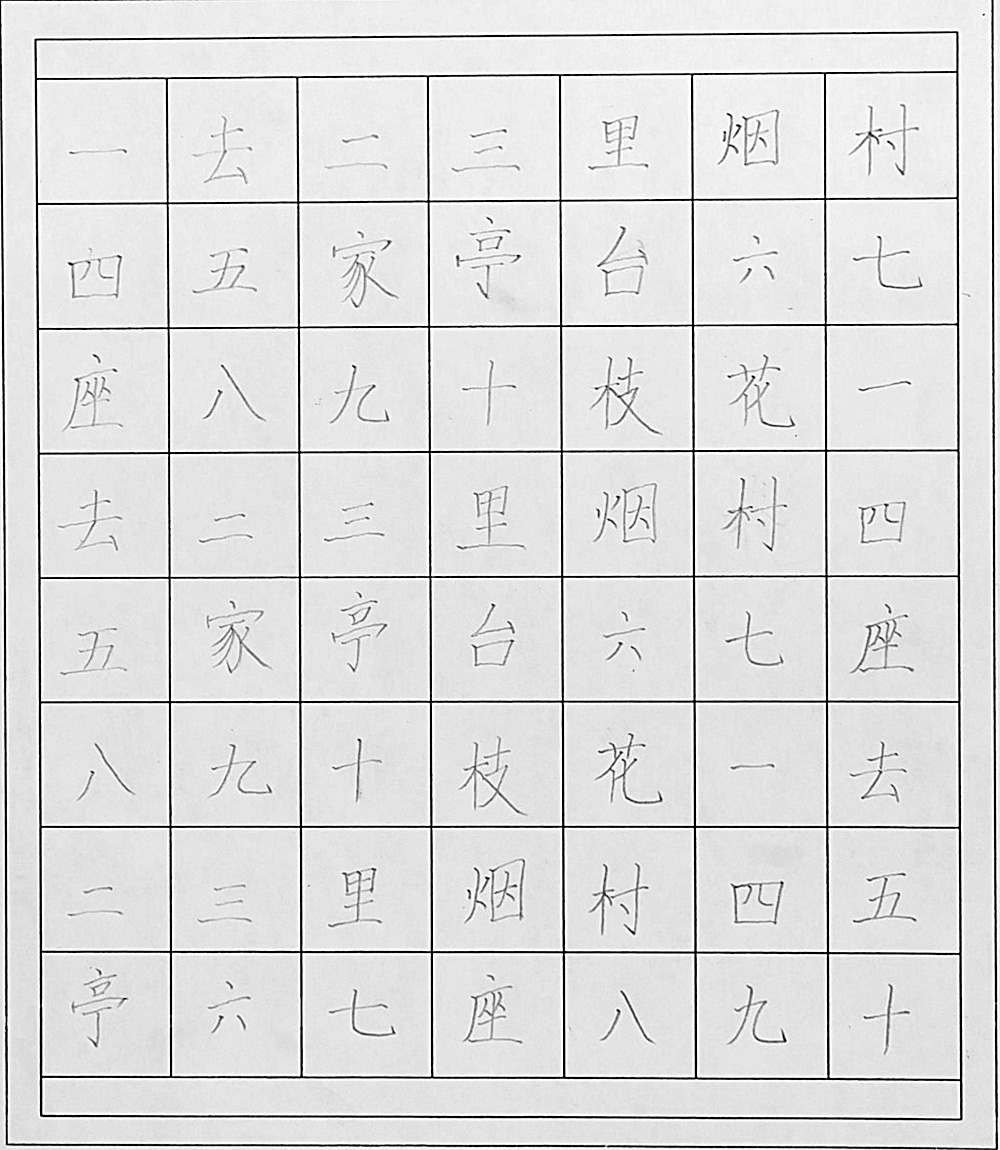 一去二三里烟村
四五家亭台六七
座八九十枝花一
去二三里烟村四
五家亭台六七座
八九十枝花一去
二三里烟村四五
亭六七座八九十